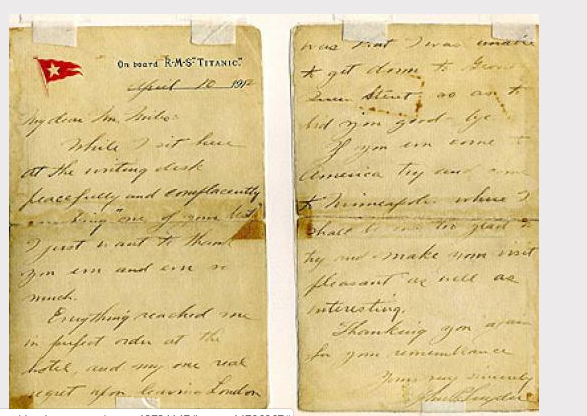 On board R·M·S "TITANIC."
April 10 1912
My dear Mr. Miles:
While I sit here
at the writing desk
peacefully and complacently
"one of your best"
I just want to thank
you ever and ever so
much.
Everything reached me
in perfect order at the
hotel, and my one real
regret upon leaving London
was that I was unable
to get down to
Street, so as to
bid you good-bye.
If you ever come to
America try and come
to Minneapolis where I
shall be too glad to
try and make your visit
pleasant as well as
interesting.
Thanking you again
for your remembrance
Yours very sincerely
Snyder